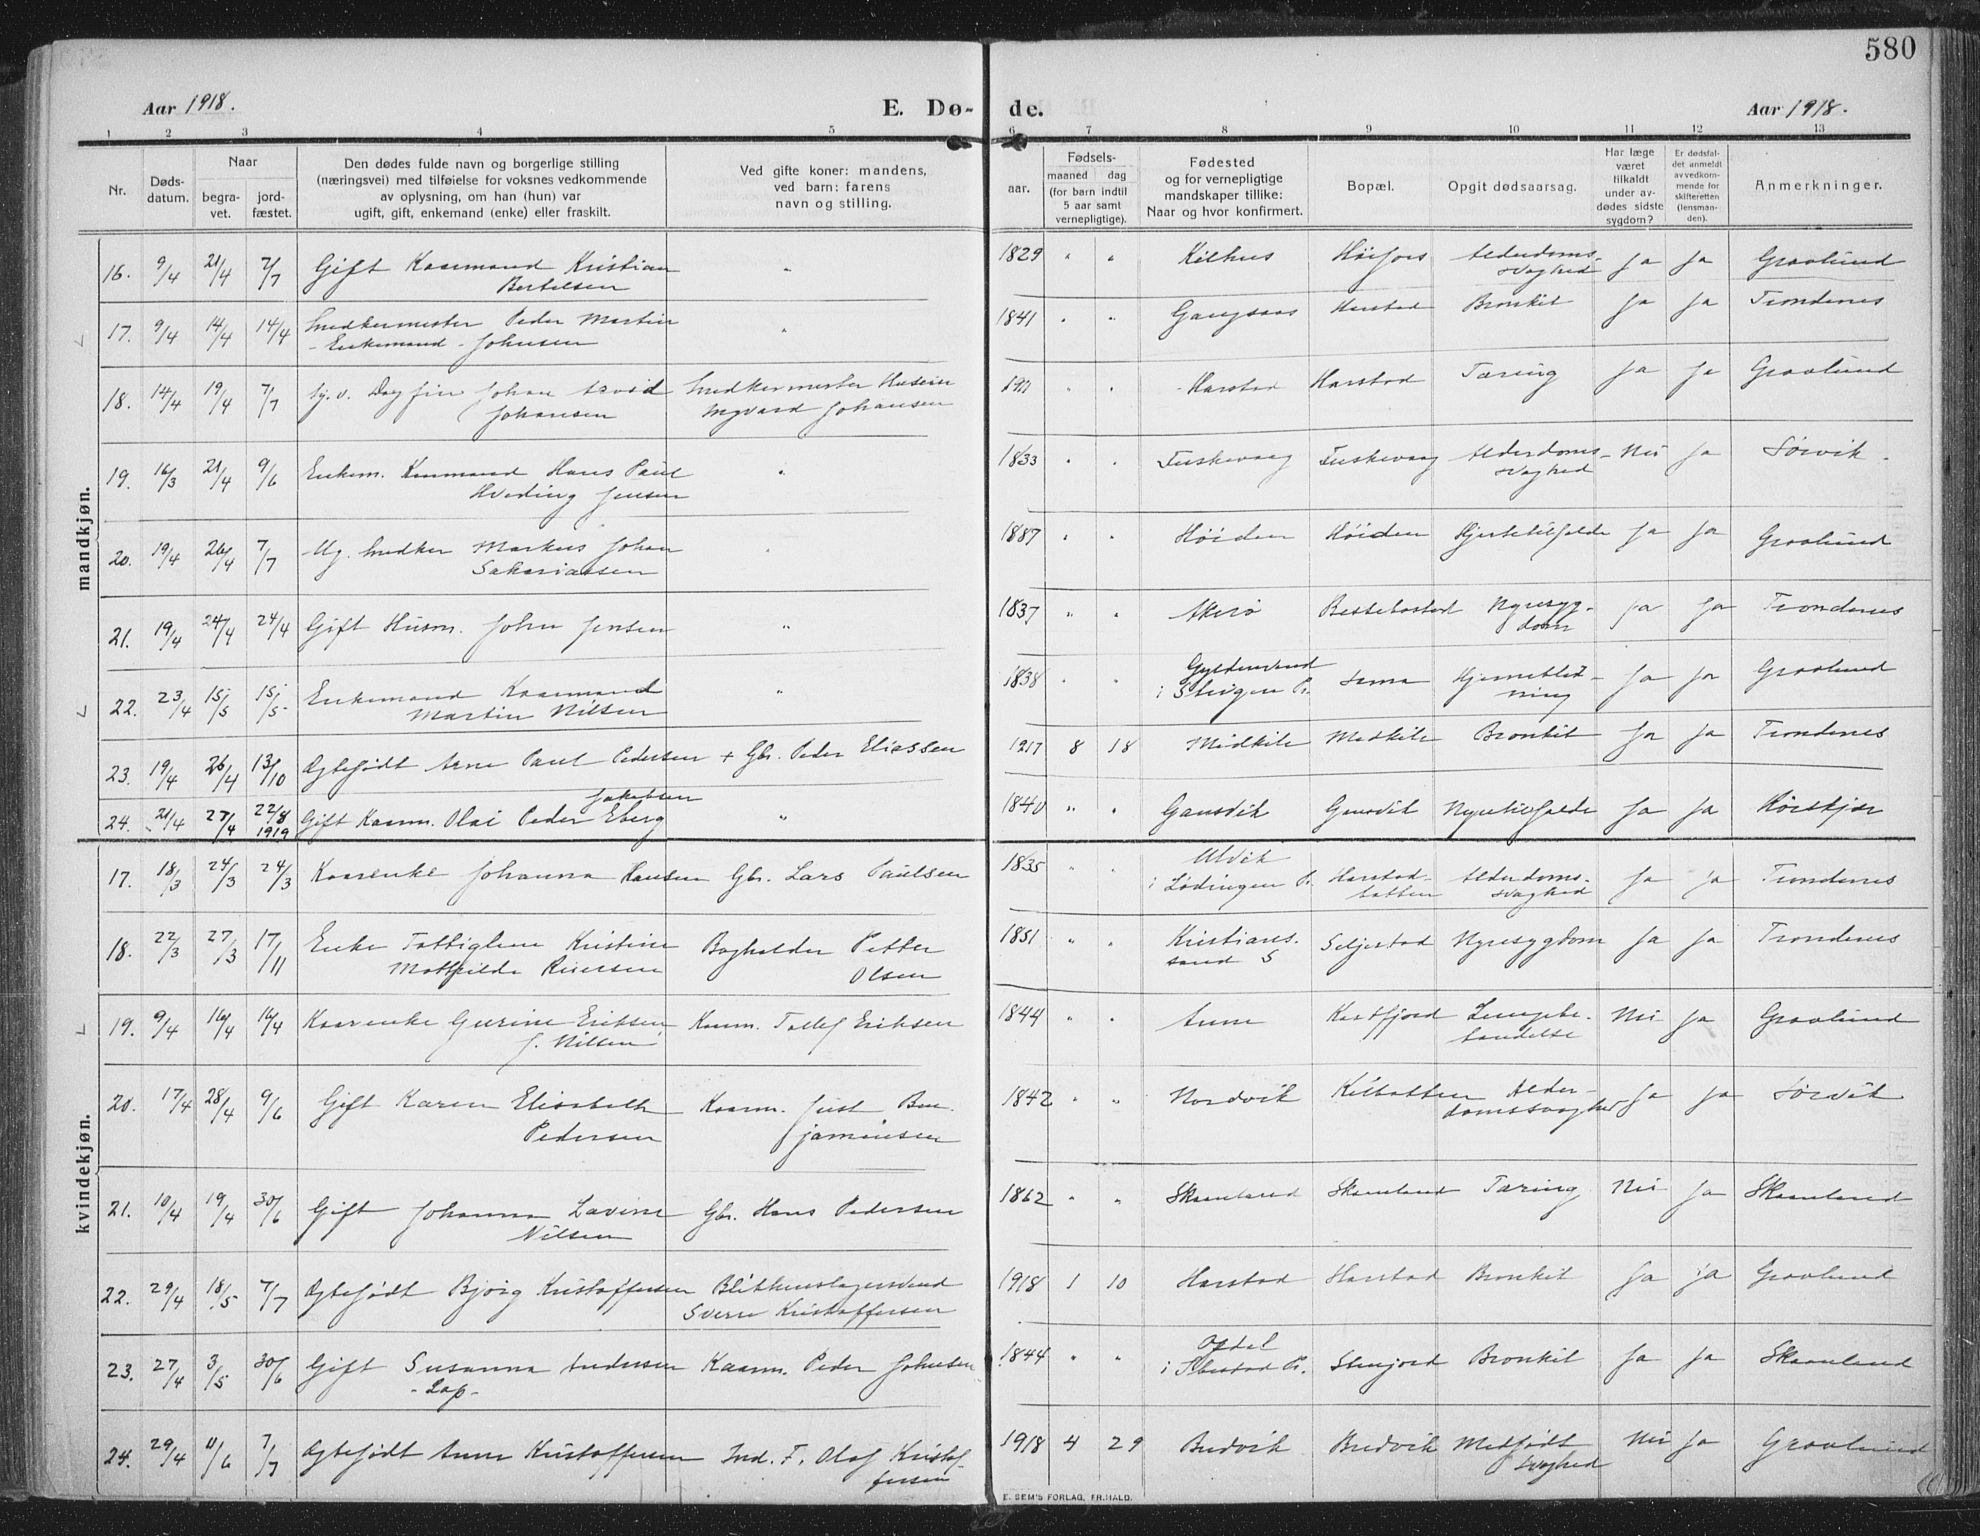 580
Aar 1918. E. Dø- de. Aar 1918.
1 2 3 4 5 6 7 8 9 10 11 12 13
Nr.
Døds-
datum.
Naar
begra-
vet.
jord-
fæstet.
Den dødes fulde navn og borgerlige stilling
(næringsvei) med tilføielse for voksnes vedkommende
av oplysning, om han (hun) var
ugift, gift, enkemand (enke) eller fraskilt.
Ved gifte koner: mandens,
ved barn: farens
navn og stilling.
aar.
Fødsels-
maaned dag
(for barn indtil
5 aar samt
vernepligtige).
Fødested
og for vernepligtige
mandskaper tillike:
Naar og hvor konfirmert.
Bopæl.
Opgit dødsaarsag.
Har læge
været
tilkaldt
under av-
dødes sidste
sygdom?
Er dødsfal-
det anmeldt
av vedkom-
mende for
skifteretten
(lensman-
den).
Anmerkninger.
mandkjøn.
16. 9/4 21/4 7/7 Gift Kaarmand Kristian " 1829 " " Kilhus Alderdoms- Ja Ja Gravlund
Bertelsen svaghed
17. 9/4 14/4 14/4 Snedkermester Peder Martin " 1841 " " Gangsaas Harstad Bronkit Ja Ja Trondenes
- Enkemand - Johnsen
18. 14/4 19/4 7/7 Dagfin Johan Arvid Snedkermester " " Harstad Harstad Tæring Ja Ja Gravlund
Johansen Ingvard Johansen
19. 16/3 21/4 9/6 Enkem. Kaarmand Hans Paul " 1833 " " Fuskevaag Fuskevaag Alderdoms- Nei Ja Sørvik
Hveding Jensen svaghed
20. 19/4 26/4 7/7 Ug. Snedker Markus Johan " 1887 " " Høiden Høiden Hjertetilfælde Ja Ja Gravlund
Sakariassen
21. 19/4 24/4 24/4 Gift Husm. John Jensen " 1837 " " Akerø Bessebostad Nyresyg- Ja Ja Trondenes
dom
22. 23/4 15/5 15/5 Enkemand Kaarmand " 1838 " " Sama Hjerneblød- Ja Ja Gravlund
Martin Nilsen i Steigen Pr. ning
23. 19/4 26/4 13/10 Ægtefødt Arne Paul Pedersen + Gbr. Peder Eliassen 1917 8 18 Medkile Medkile Bronkit Ja Ja Trondenes
Jakobsen
24. 21/4 27/4 22/8 1919 Gift Kaarm. Olai Peder Eberg " 1840 " " Gansvik Nyretilfælde Ja Ja
kvindekjøn.
17. 18/3 24/3 24/3 Kaarenke Johanna Hansen Gbr. Lars Paulsen 1835 " Ulvik Harstad- Alderdoms- Ja Ja Trondenes
i Lødingen Pr. botten svaghed
18. 22/3 27/3 17/11 Enke Kristine Bogholder Petter 1851 " " Kristians- Seljestad Nyresygdom Ja Ja Trondenes
Mathilde Olsen sand S
19. 9/4 16/4 16/4 Kaarenke Gurine Eriksen Kaarm. Tollef Eriksen 1844 " " Kastfjord Lungebe- Nei Ja Gravlund
f. Nilsen tændelse
20. 17/4 28/4 9/6 Gift Karen Elisabeth Kaarm. Just Ben- 1842 " " Nordvik Kilbotten Alder- Ja Ja Sørvik
Pedersen jaminsen domssvaghed
21. 10/4 19/4 30/6 Gift Johanna Lavine Gbr. Hans Pedersen 1862 " " Skaanland Skaanland Tæring Nei Ja Skaanland
Nilsen
22. 29/4 18/5 7/7 Ægtefødt Bjørg Kristoffersen Blikkenslagersvend 1918 1 10 Harstad Harstad Bronkit Ja Ja Gravlund
Sverre Kristoffersen
23. 27/4 3/5 30/6 Gift Susanna Andersen Kaarm. Peder Johnsen 1844 " " Opdal Bronkit Ja Ja Skaanland
- Lap - i Ibestad Pr.
24. 29/4 11/6 7/7 Ægtefødt Anna Kristoffersen Ind. F. Olaf Kristof- 1918 4 29 Budvik Budvik Medfødt Nei Ja Gravlund
fersen svaghed
E. SEM'S FORLAG, FR.HALD.